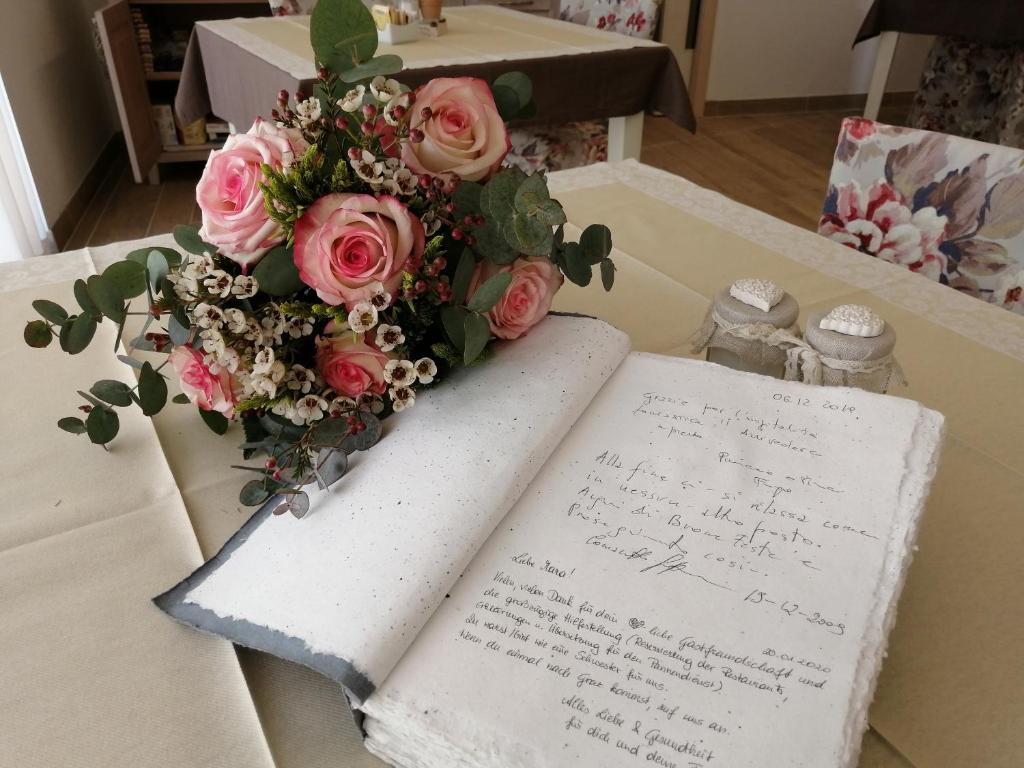 06.12 2019.
Grazie per l'ospitalità
arrivederci
a presto
Alla fine ci si rilassa come
in nessun altro posto.
Auguri di Buone Feste e
Prosegui così.
15-12-2019
Liebe Mara!
20.01.2020
Vielen, vielen Dank für dein liebe Gastfreundschaft und
die großzügige Hilfestellung (Reservierung der Restaurants,
Erklärungen u. Übersetzung für den Pannendienst).
Du warst/bist wie eine Schwester für uns.
Wenn du einmal nach Graz kommst, ruf uns an.
Alles Liebe & Gesundheit
für dich und deine